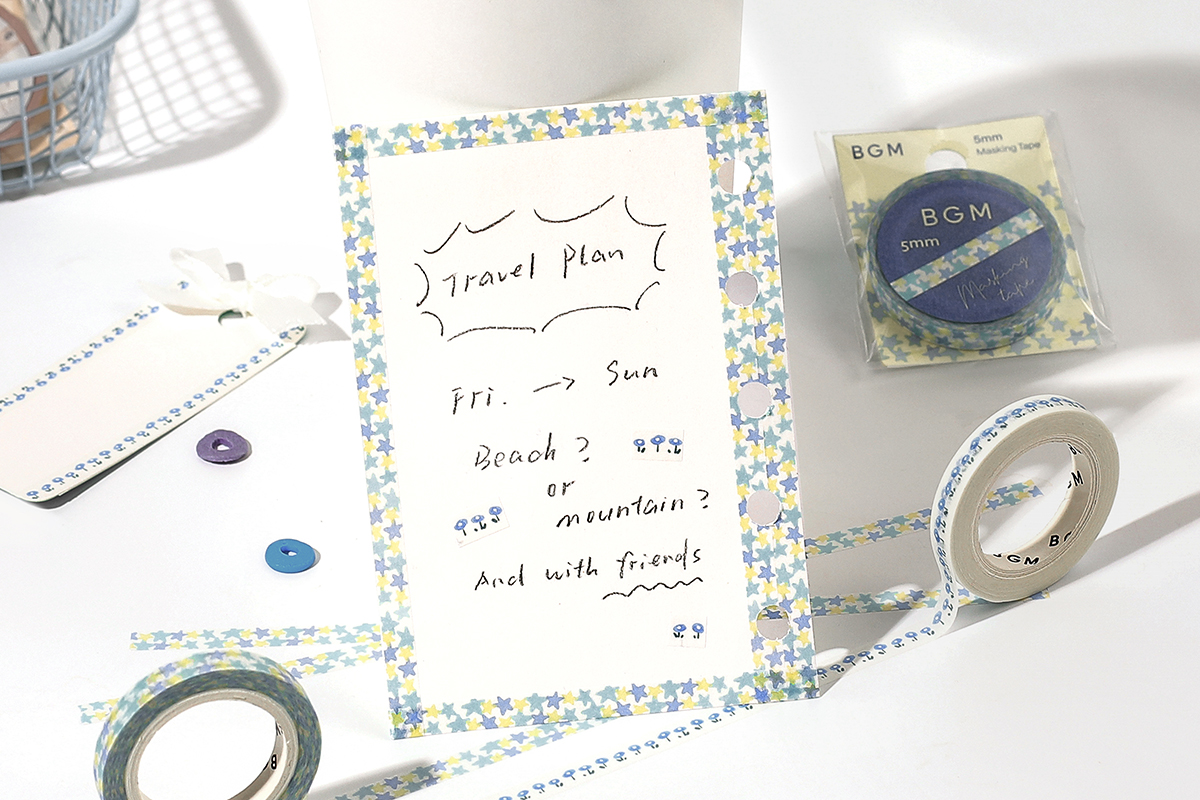 Travel Plan
Fri. → Sun
Beach?
or
mountain?
And with friends
BGM
5mm
Masking Tape
BGM
5mm
Masking
tape
BGM